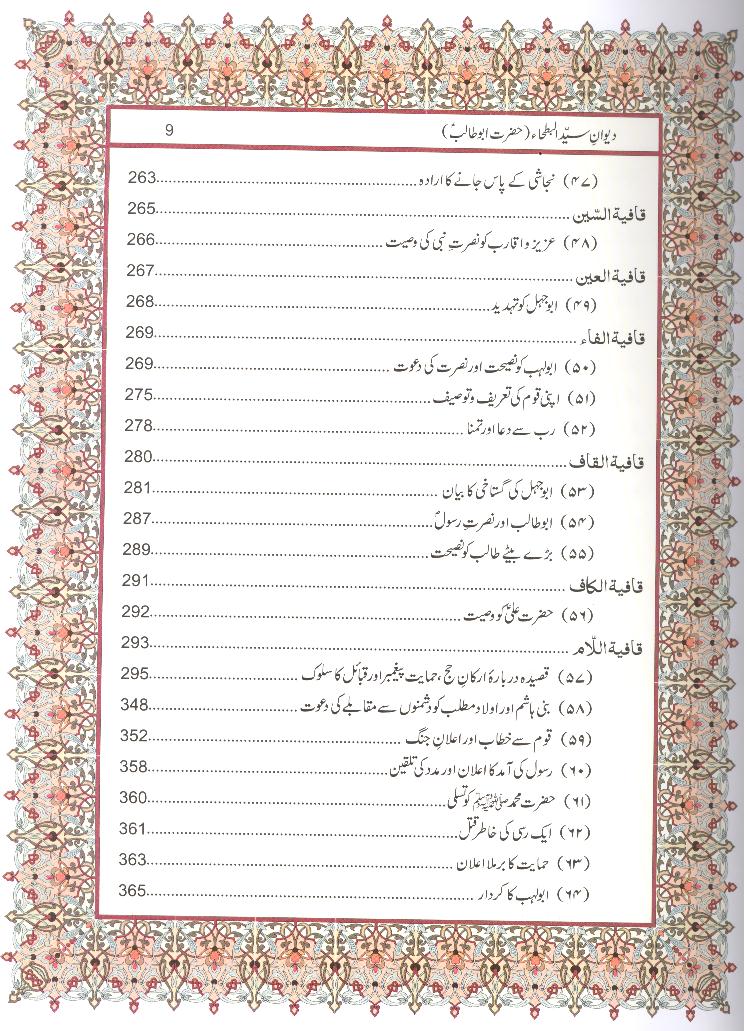 دیوانِ سیّد البطحاء (حضرت ابوطالبؑ) 9
(۴۷) نجاشی کے پاس جانے کا ارادہ 263
قافیة السّین 265
(۴۸) عزیز و اقارب کو نصرتِ نبی کی وصیت 266
قافیة العین 267
(۴۹) ابوجہل کو تہدید 268
قافیة الفاء 269
(۵۰) ابولہب کو نصیحت اور نصرت کی دعوت 269
(۵۱) اپنی قوم کی تعریف و توصیف 275
(۵۲) رب سے دعا اور تمنا 278
قافیة القاف 280
(۵۳) ابوجہل کی گستاخی کا بیان 281
(۵۴) ابوطالب اور نصرتِ رسولؐ 287
(۵۵) بڑے بیٹے طالب کو نصیحت 289
قافیة الکاف 291
(۵۶) حضرت علیؑ کو وصیت 292
قافیة اللّام 293
(۵۷) قصیدہ دربارۂ ارکانِ حج، حمایت پیغمبر اور قبائل کا سلوک 295
(۵۸) بنی ہاشم اور اولاد مطلب کو دشمنوں سے مقابلے کی دعوت 348
(۵۹) قوم سے خطاب اور اعلانِ جنگ 352
(۶۰) رسول کی آمد کا اعلان اور مدد کی تلقین 358
(۶۱) حضرت محمد ﷺ کو تسلی 360
(۶۲) ایک رسی کی خاطر قتل 361
(۶۳) حمایت کا برملا اعلان 363
(۶۴) ابولہب کا کردار 365